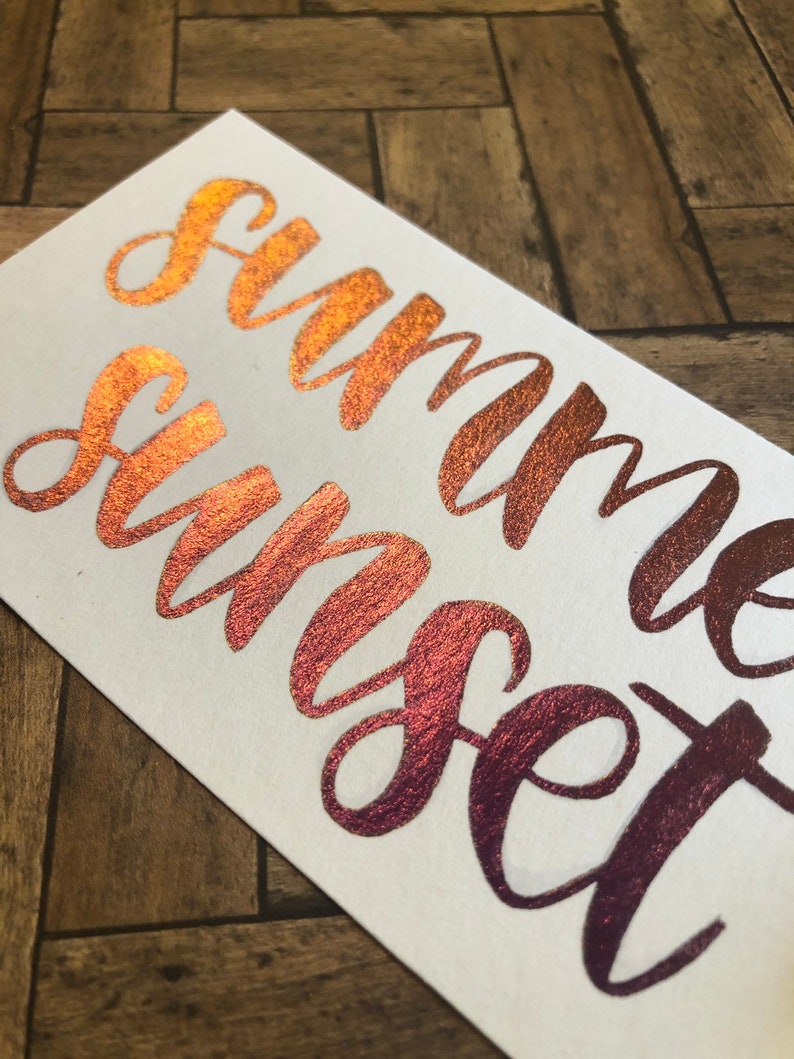 summe
sunset